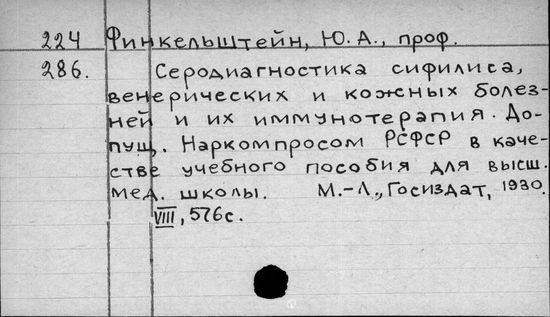 224 Финкельштейн, Ю. А., проф.
286. Серодиагностика сифилиса,
венерических и кожных болез-
ней и их иммунотерапия. До-
пущ. Наркомпросом РСФСР в каче-
стве учебного пособия для высш.
мед. школы. М.-Л., Госиздат, 1930.
VIII, 576 с.